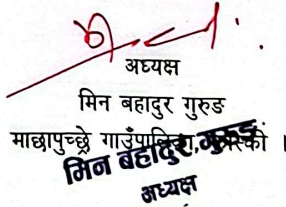 अध्यक्ष
मिन बहादुर गुरुङ
माछापुच्छ्रे गाउँपालिका, कास्की ।
मिन बहादुर गुरुङ
अध्यक्ष